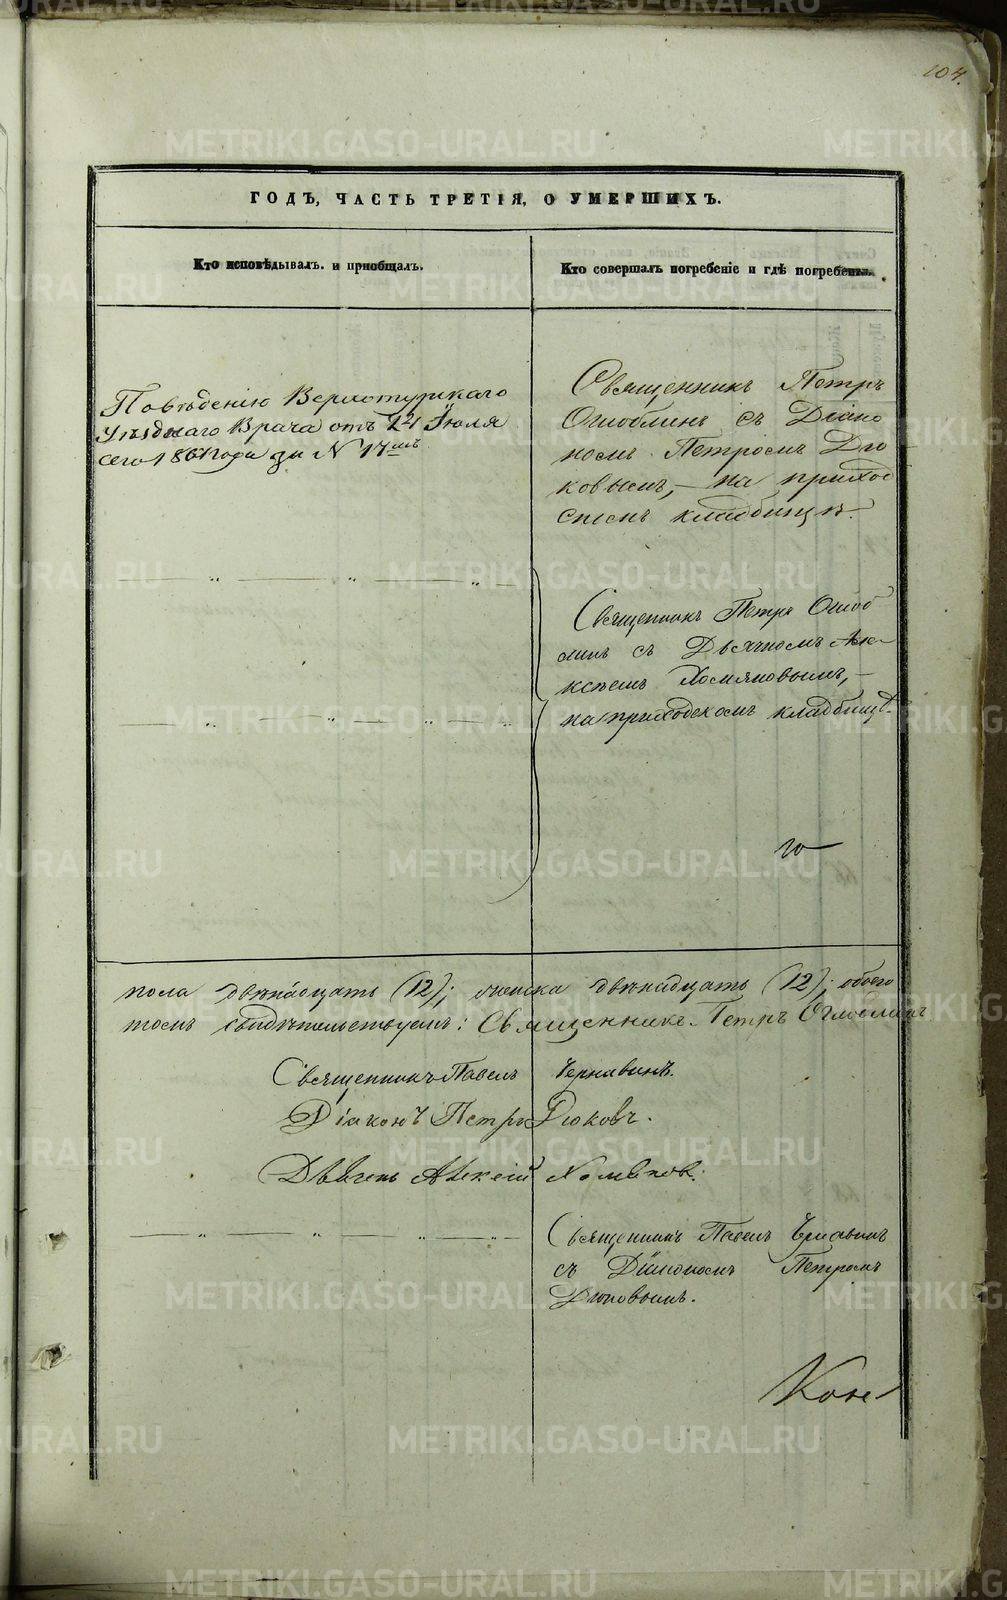 104.
ГОДЪ, ЧАСТЬ ТРЕТІЯ, О УМЕРШИХЪ.
Кто исповѣдывалъ и пріобщалъ.
Кто совершалъ погребеніе и гдѣ погребены.
По вѣденію Верхотурскаго
Уѣзднаго Врача отъ 24 Іюля
сего 1861 года за № 17мъ
Священникъ Петръ
Оглоблинъ съ Діако
номъ Петромъ Дю
ковымъ, на приход
скомъ кладбищѣ.
Священникъ Петръ Оглоб
линъ съ Дьячкомъ Але
ксѣемъ Хомяковымъ,
на приходскомъ кладбищѣ.
пола двѣнадцать (12); женска двѣнадцать (12); обоего
томъ свидѣтельствуемъ: Священникъ Петръ Оглоблинъ
Священникъ Павелъ Чернавинъ.
Діаконъ Петръ Дюковъ.
Дьячекъ Алексій Хомяковъ.
Священникъ Павелъ Чернавинъ
съ Діакономъ Петромъ
Дюковымъ.
METRIKI.GASO-URAL.RU